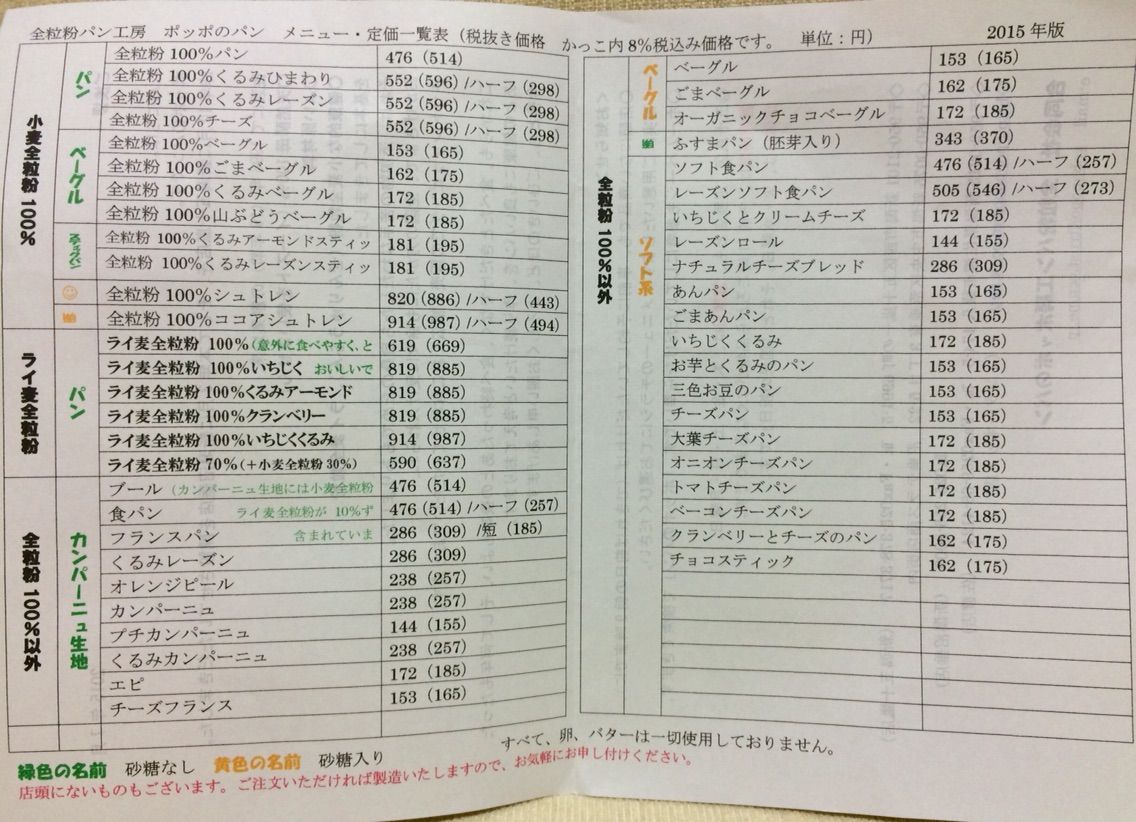 全粒粉パン工房　ポッポのパン　メニュー・定価一覧表（税抜き価格　かっこ内8%税込み価格です。　単位：円）　2015年版
小麦全粒粉 100%
パン
全粒粉 100%パン　476（514）
全粒粉 100%くるみひまわり　552（596）/ハーフ（298）
全粒粉 100%くるみレーズン　552（596）/ハーフ（298）
全粒粉 100%チーズ　552（596）/ハーフ（298）
ベーグル
全粒粉 100%ベーグル　153（165）
全粒粉 100%ごまベーグル　162（175）
全粒粉 100%くるみベーグル　172（185）
全粒粉 100%山ぶどうベーグル　172（185）
全粒粉 100%くるみアーモンドスティッ　181（195）
全粒粉 100%くるみレーズンスティッ　181（195）
全粒粉 100%シュトレン　820（886）/ハーフ（443）
全粒粉 100%ココアシュトレン　914（987）/ハーフ（494）
ライ麦全粒粉
パン
ライ麦全粒粉 100%（意外に食べやすく、と　619（669）
ライ麦全粒粉 100%いちじく　おいしいで　819（885）
ライ麦全粒粉 100%くるみアーモンド　819（885）
ライ麦全粒粉 100%クランベリー　819（885）
ライ麦全粒粉 100%いちじくくるみ　914（987）
ライ麦全粒粉 70%（＋小麦全粒粉 30%）　590（637）
全粒粉 100%以外
カンパーニュ生地
ブール（カンパーニュ生地には小麦全粒粉　476（514）
食パン　ライ麦全粒粉が 10%ず　476（514）/ハーフ（257）
フランスパン　含まれていま　286（309）/短（185）
くるみレーズン　286（309）
オレンジピール　238（257）
カンパーニュ　238（257）
プチカンパーニュ　144（155）
くるみカンパーニュ　238（257）
エピ　172（185）
チーズフランス　153（165）
全粒粉 100%以外
ベーグル
ベーグル　153（165）
ごまベーグル　162（175）
オーガニックチョコベーグル　172（185）
ふすまパン（胚芽入り）　343（370）
ソフト系
ソフト食パン　476（514）/ハーフ（257）
レーズンソフト食パン　505（546）/ハーフ（273）
いちじくとクリームチーズ　172（185）
レーズンロール　144（155）
ナチュラルチーズブレッド　286（309）
あんパン　153（165）
ごまあんパン　153（165）
いちじくくるみ　172（185）
お芋とくるみのパン　153（165）
三色お豆のパン　153（165）
チーズパン　153（165）
大葉チーズパン　172（185）
オニオンチーズパン　172（185）
トマトチーズパン　172（185）
ベーコンチーズパン　172（185）
クランベリーとチーズのパン　162（175）
チョコスティック　162（175）
すべて、卵、バターは一切使用しておりません。
緑色の名前　砂糖なし　黄色の名前　砂糖入り
店頭にないものもございます。ご注文いただければ製造いたしますので、お気軽にお申し付けください。